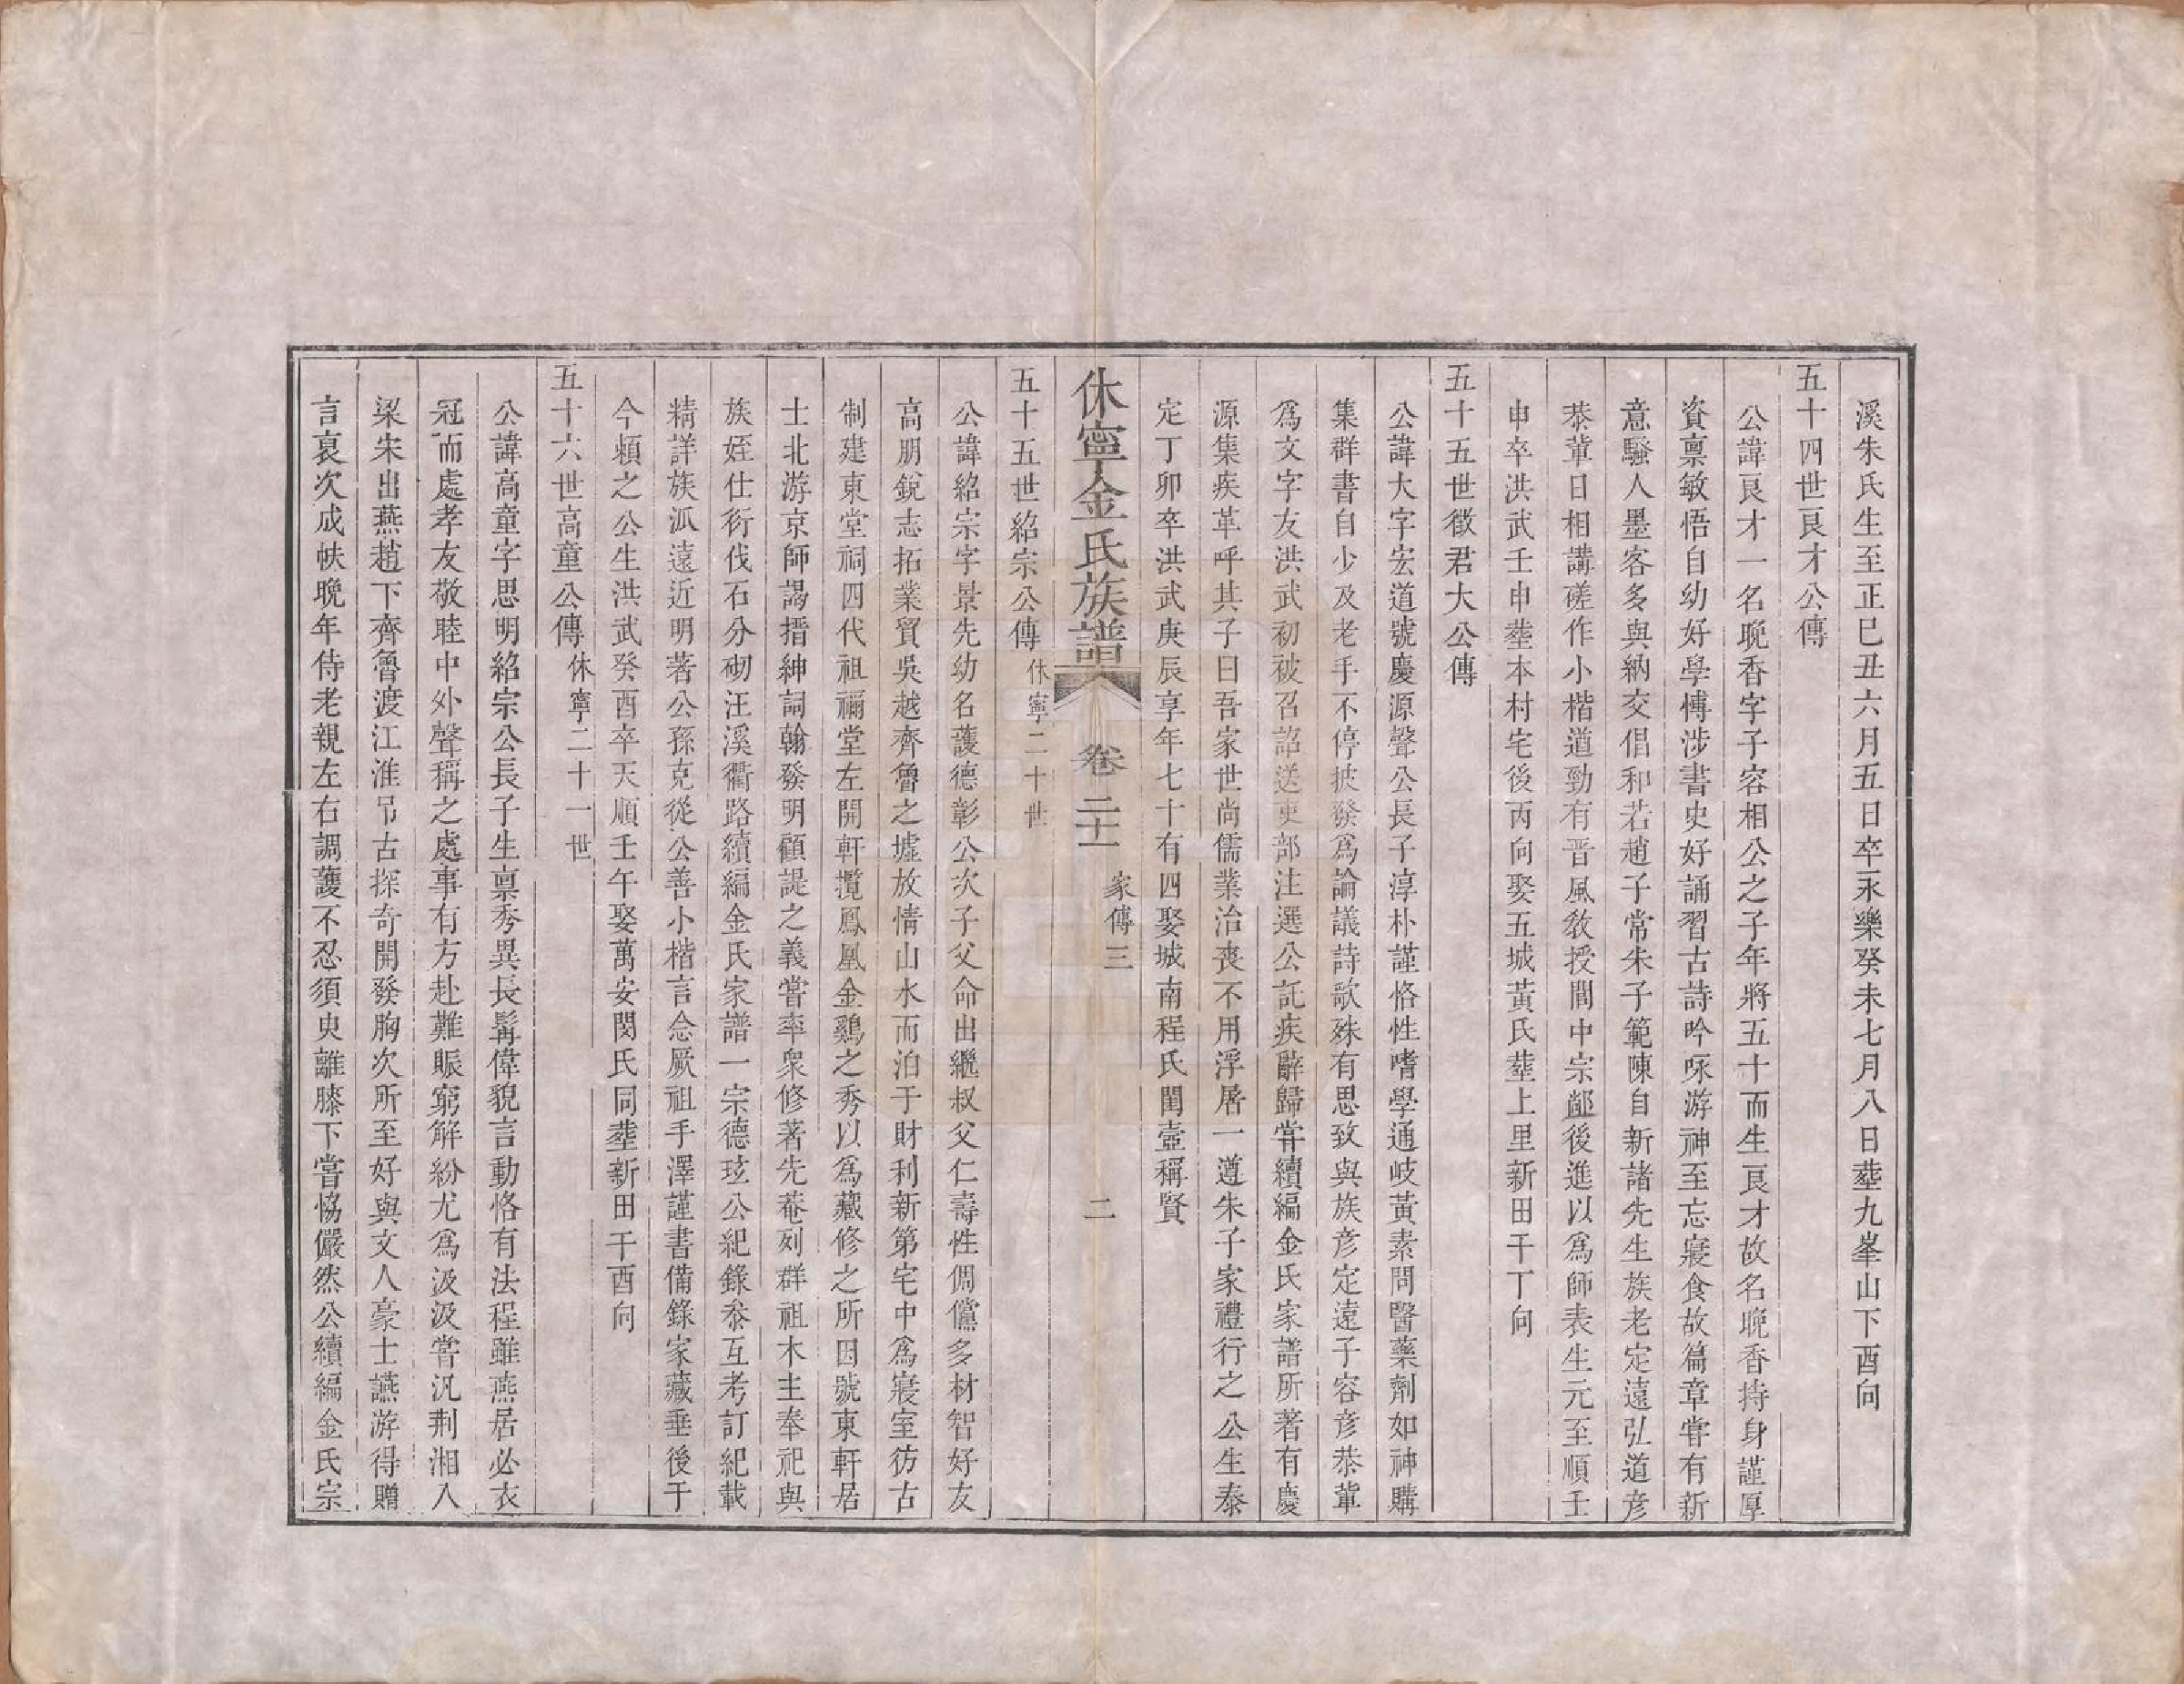 溪朱氏生至正己丑六月五日卒永樂癸未七月八日塟九峯山下酉向
五十四世艮才公傳
公諱艮才一名晚香字子容相公之子年將五十而生艮才故名晚香持身謹厚
資禀敏悟自幼好學博涉書史好誦習古詩吟咏游神至忘寢食故篇章甞有新
意騷人墨客多與納交倡和若趙子常朱子範陳自新諸先生族老定遠弘道彦
恭軰日相講磋作小楷遒勁有晋風敎授閭中宗鄙後進以爲師表生元至順壬
申卒洪武壬申塟本村宅後丙向娶五城黃氏塟上里新田干丁向
五十五世徴君大公傳
公諱大字宏道號慶源聲公長子淳朴謹恪性嗜學通岐黃素問醫藥劑如神購
集群書自少及老手不停披發爲論議詩歌殊有思致與族彦定遠子容彦恭軰
爲文字友洪武初被召詔送吏部注選公託疾辭歸甞續編金氏家譜所著有慶
源集疾革呼其子曰吾家世尚儒業治喪不用浮屠一遵朱子家禮行之公生泰
定丁卯卒洪武庚辰享年七十有四娶城南程氏閨壼稱賢
休寧金氏族譜 卷二十一 家傳三 二
五十五世紹宗公傳 休寧二十世
公諱紹宗字景先幼名護德彰公次子父命出繼叔父仁壽性倜儻多材智好友
高朋銳志拓業貿吳越齊魯之墟放情山水而泊于財利新第宅中爲寢室彷古
制建東堂祠四代祖禰堂左開軒攬鳳凰金鷄之秀以爲藏修之所因號東軒居
士北游京師謁搢紳詞翰發明顧諟之義嘗率衆修著先菴刻群祖木主奉祀與
族姪仕衍伐石分砌汪溪衢路續編金氏家譜一宗德玹公紀錄叅互考訂紀載
精詳族派遠近明著公孫克從公善小楷言念厥祖手澤謹書備錄家藏垂後于
今頼之公生洪武癸酉卒天順壬午娶萬安閔氏同塟新田干酉向
五十六世高童公傳 休寧二十一世
公諱高童字思明紹宗公長子生禀秀異長髯偉貌言動恪有法程雖燕居必衣
冠而處孝友敬睦中外聲稱之處事有方赴難賑窮解紛尤爲汲汲嘗汎荆湘入
梁朱出燕趙下齊魯渡江淮吊古探奇開發胸次所至好與文人豪士讌游得贈
言裒次成帙晚年侍老親左右調護不忍須臾離膝下嘗恊儼然公續編金氏宗